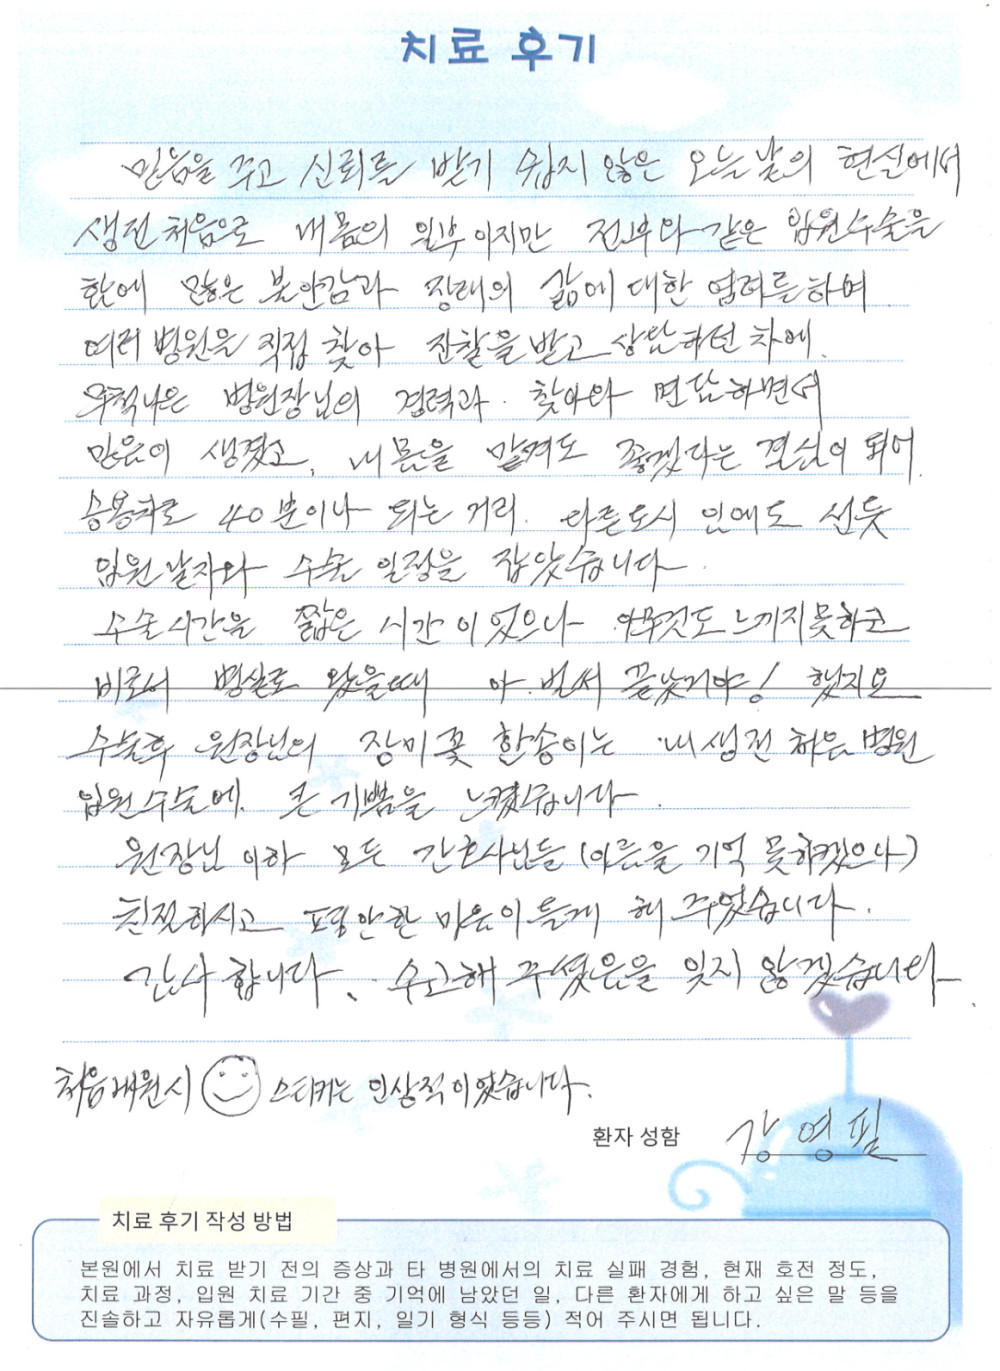 치료 후기
믿음을 주고 신뢰를 받기 쉽지 않은 오늘날의 현실에서
생전 처음으로 내 몸의 일부이지만 전부와 같은 입원수술을
함에 많은 불안감과 장래의 삶에 대한 염려를 하며
여러 병원을 직접 찾아 진찰을 받고 상담하던 차에.
우척나은 병원장님의 경력과. 찾아와 면담하면서
믿음이 생겼고, 내 몸을 맡겨도 좋겠다는 결심이 되어.
승용차로 40분이나 되는 거리. 다른도시 인데도 선뜻
입원 날자와 수술 일정을 잡았습니다.
수술시간은 짧은 시간 이었으나 아무것도 느끼지못하고
비로서 병실로 왔을때 아. 벌써 끝났거야! 했지요
수술후 원장님의 장미꽃 한송이는 내생전 처음 병원
입원수술에. 큰 기쁨을 느꼈습니다.
원장님 이하 모든 간호사님들 (이름을 기억 못하겠으나)
친절하시고 편안한 마음이 들게 해 주었습니다.
감사 합니다. 수고해 주셨음을 잊지 않겠습니다.
처음내원시 스티커는 인상적이었습니다.
환자 성함 강영필
치료 후기 작성 방법
본원에서 치료 받기 전의 증상과 타 병원에서의 치료 실패 경험, 현재 호전 정도,
치료 과정, 입원 치료 기간 중 기억에 남았던 일, 다른 환자에게 하고 싶은 말 등을
진솔하고 자유롭게(수필, 편지, 일기 형식 등등) 적어 주시면 됩니다.